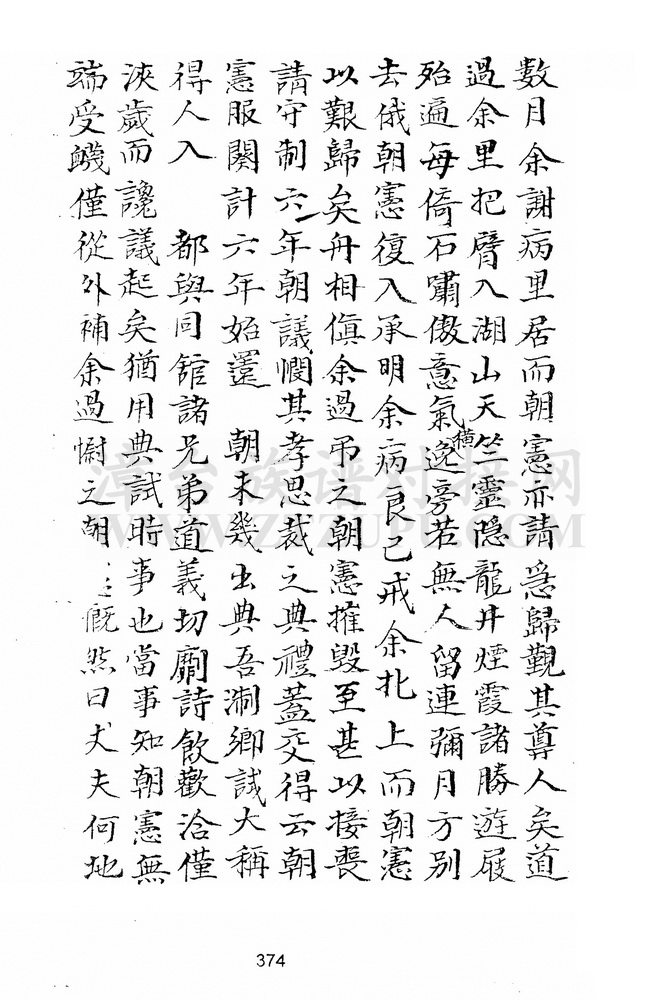 數月余謝病里居而朝憲亦請急歸觀其尊人矣道
過余里把臂入湖山天竺靈隱龍井煙霞諸勝遊屐
殆遍每倚石嘯傲意氣橫逸旁若無人留連彌月方別
去俄朝憲復入承明余病良已戒余北上而朝憲
以艱歸矣舟相值余過吊之朝憲摧毀至甚以接喪
請守制六年朝議憫其孝思裁之典禮蓋交得云朝
憲服闋計六年始還 朝未幾出典吾淛鄉試大稱
得人入 都與同舘諸兄弟道義切劘詩飲歡洽僅
浹歲而讒議起矣猶用典試時事也當事知朝憲無
端受僅從外補余過慰之朝慨然曰丈夫何地
374